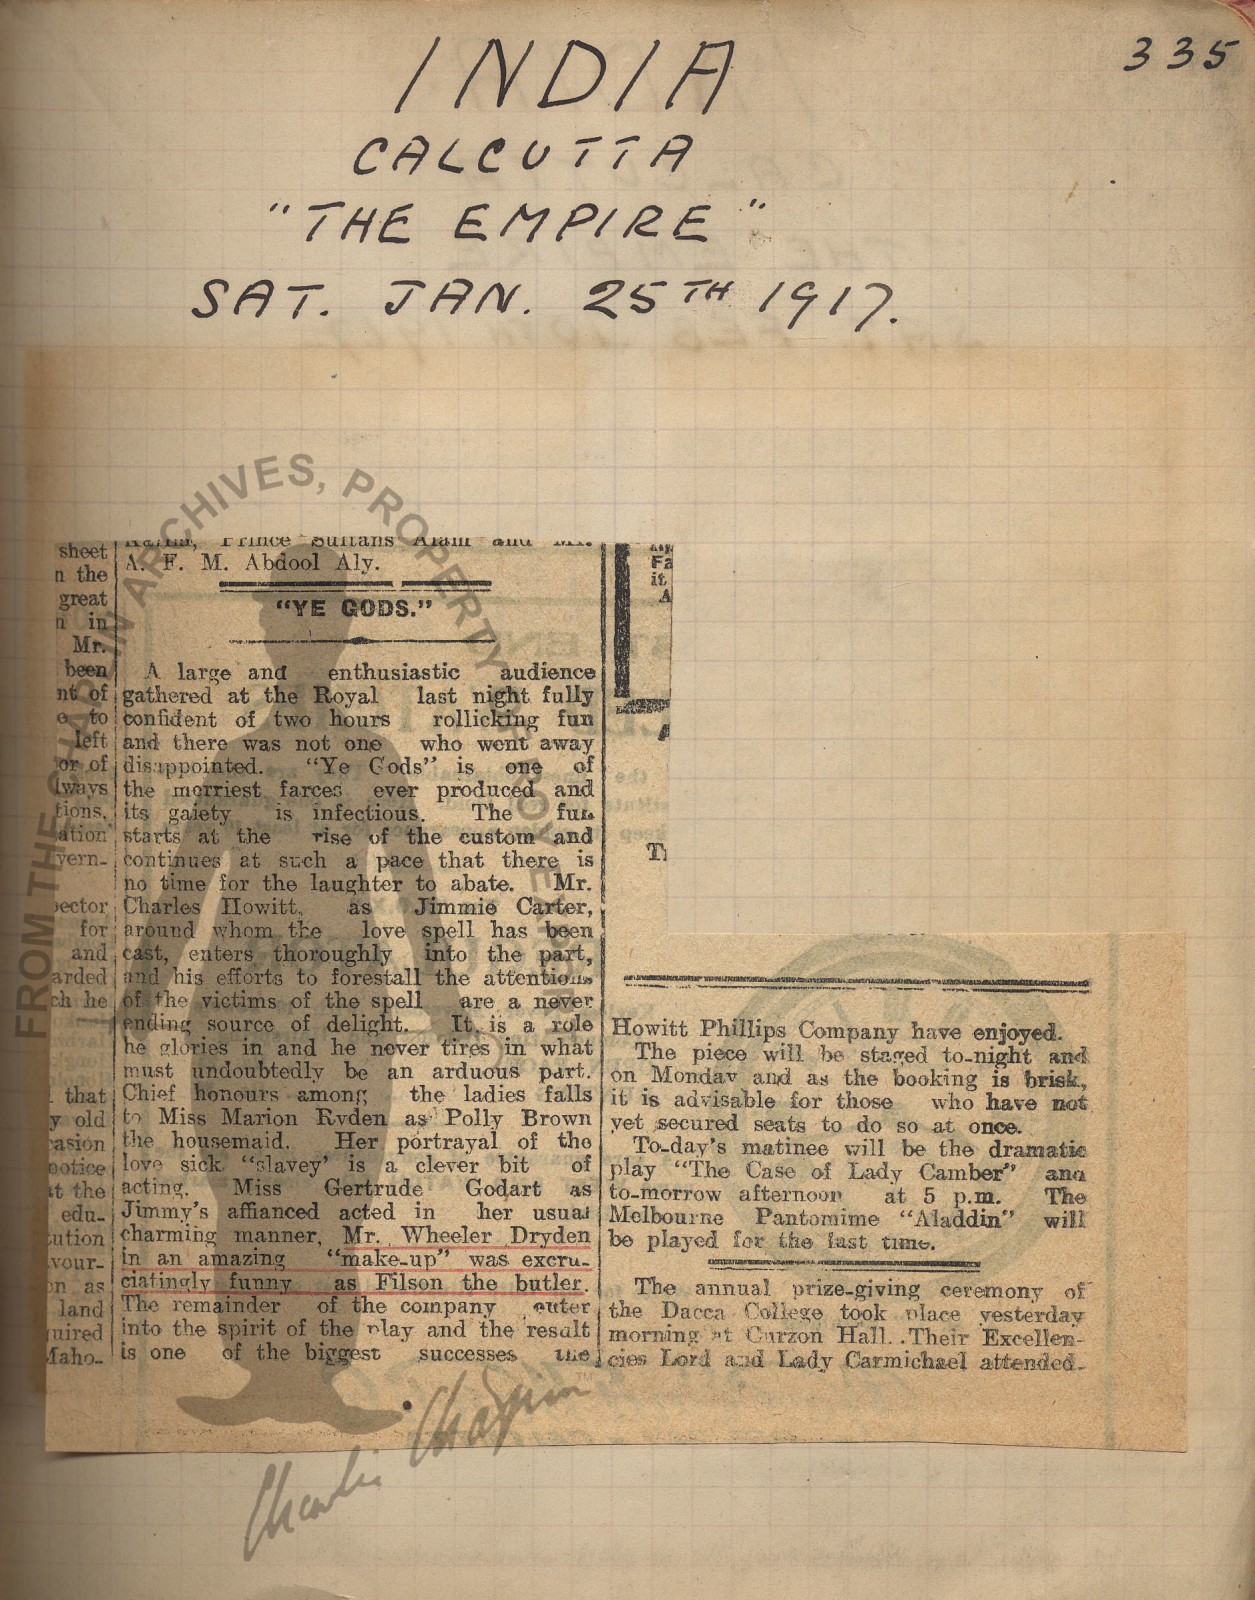 335
INDIA
CALCUTTA
"THE EMPIRE"
SAT. JAN. 25TH 1917.
FROM THE CHAPLIN ARCHIVES, PROPERTY OF ROY EXPORT
Prince Sultans Alam and Mr.
A. F. M. Abdool Aly.
"YE GODS."
A large and enthusiastic audience
gathered at the Royal last night fully
confident of two hours rollicking fun
and there was not one who went away
disappointed. "Ye Gods" is one of
the merriest farces ever produced and
its gaiety is infectious. The fun
starts at the rise of the custom and
continues at such a pace that there is
no time for the laughter to abate. Mr.
Charles Howitt, as Jimmie Carter,
around whom the love spell has been
cast, enters thoroughly into the part,
and his efforts to forestall the attentions
of the victims of the spell are a never
ending source of delight. It is a role
he glories in and he never tires in what
must undoubtedly be an arduous part.
Chief honours among the ladies falls
to Miss Marion Ryden as Polly Brown
the housemaid. Her portrayal of the
love sick "slavey' is a clever bit of
acting. Miss Gertrude Godart as
Jimmy's affianced acted in her usual
charming manner, Mr. Wheeler Dryden
in an amazing "make-up" was excru-
ciatingly funny as Filson the butler.
The remainder of the company enter
into the spirit of the play and the result
is one of the biggest successes the
Howitt Phillips Company have enjoyed.
The piece will be staged to-night and
on Monday and as the booking is brisk,
it is advisable for those who have not
yet secured seats to do so at once.
To-day's matinee will be the dramatic
play "The Case of Lady Camber" and
to-morrow afternoon at 5 p.m. The
Melbourne Pantomime "Aladdin" will
be played for the last time.
The annual prize-giving ceremony of
the Dacca College took place yesterday
morning at Curzon Hall. Their Excellen-
cies Lord and Lady Carmichael attended.
sheet
n the
great
n in
Mr.
been
nt of
e to
left
or of
lways
tions.
ation
vern-
pector
for
and
arded
ch he
that
y old
casion
notice
at the
edu-
ution
vour-
n as
land
quired
Maho-
Fa
it
A
Charlie Chaplin